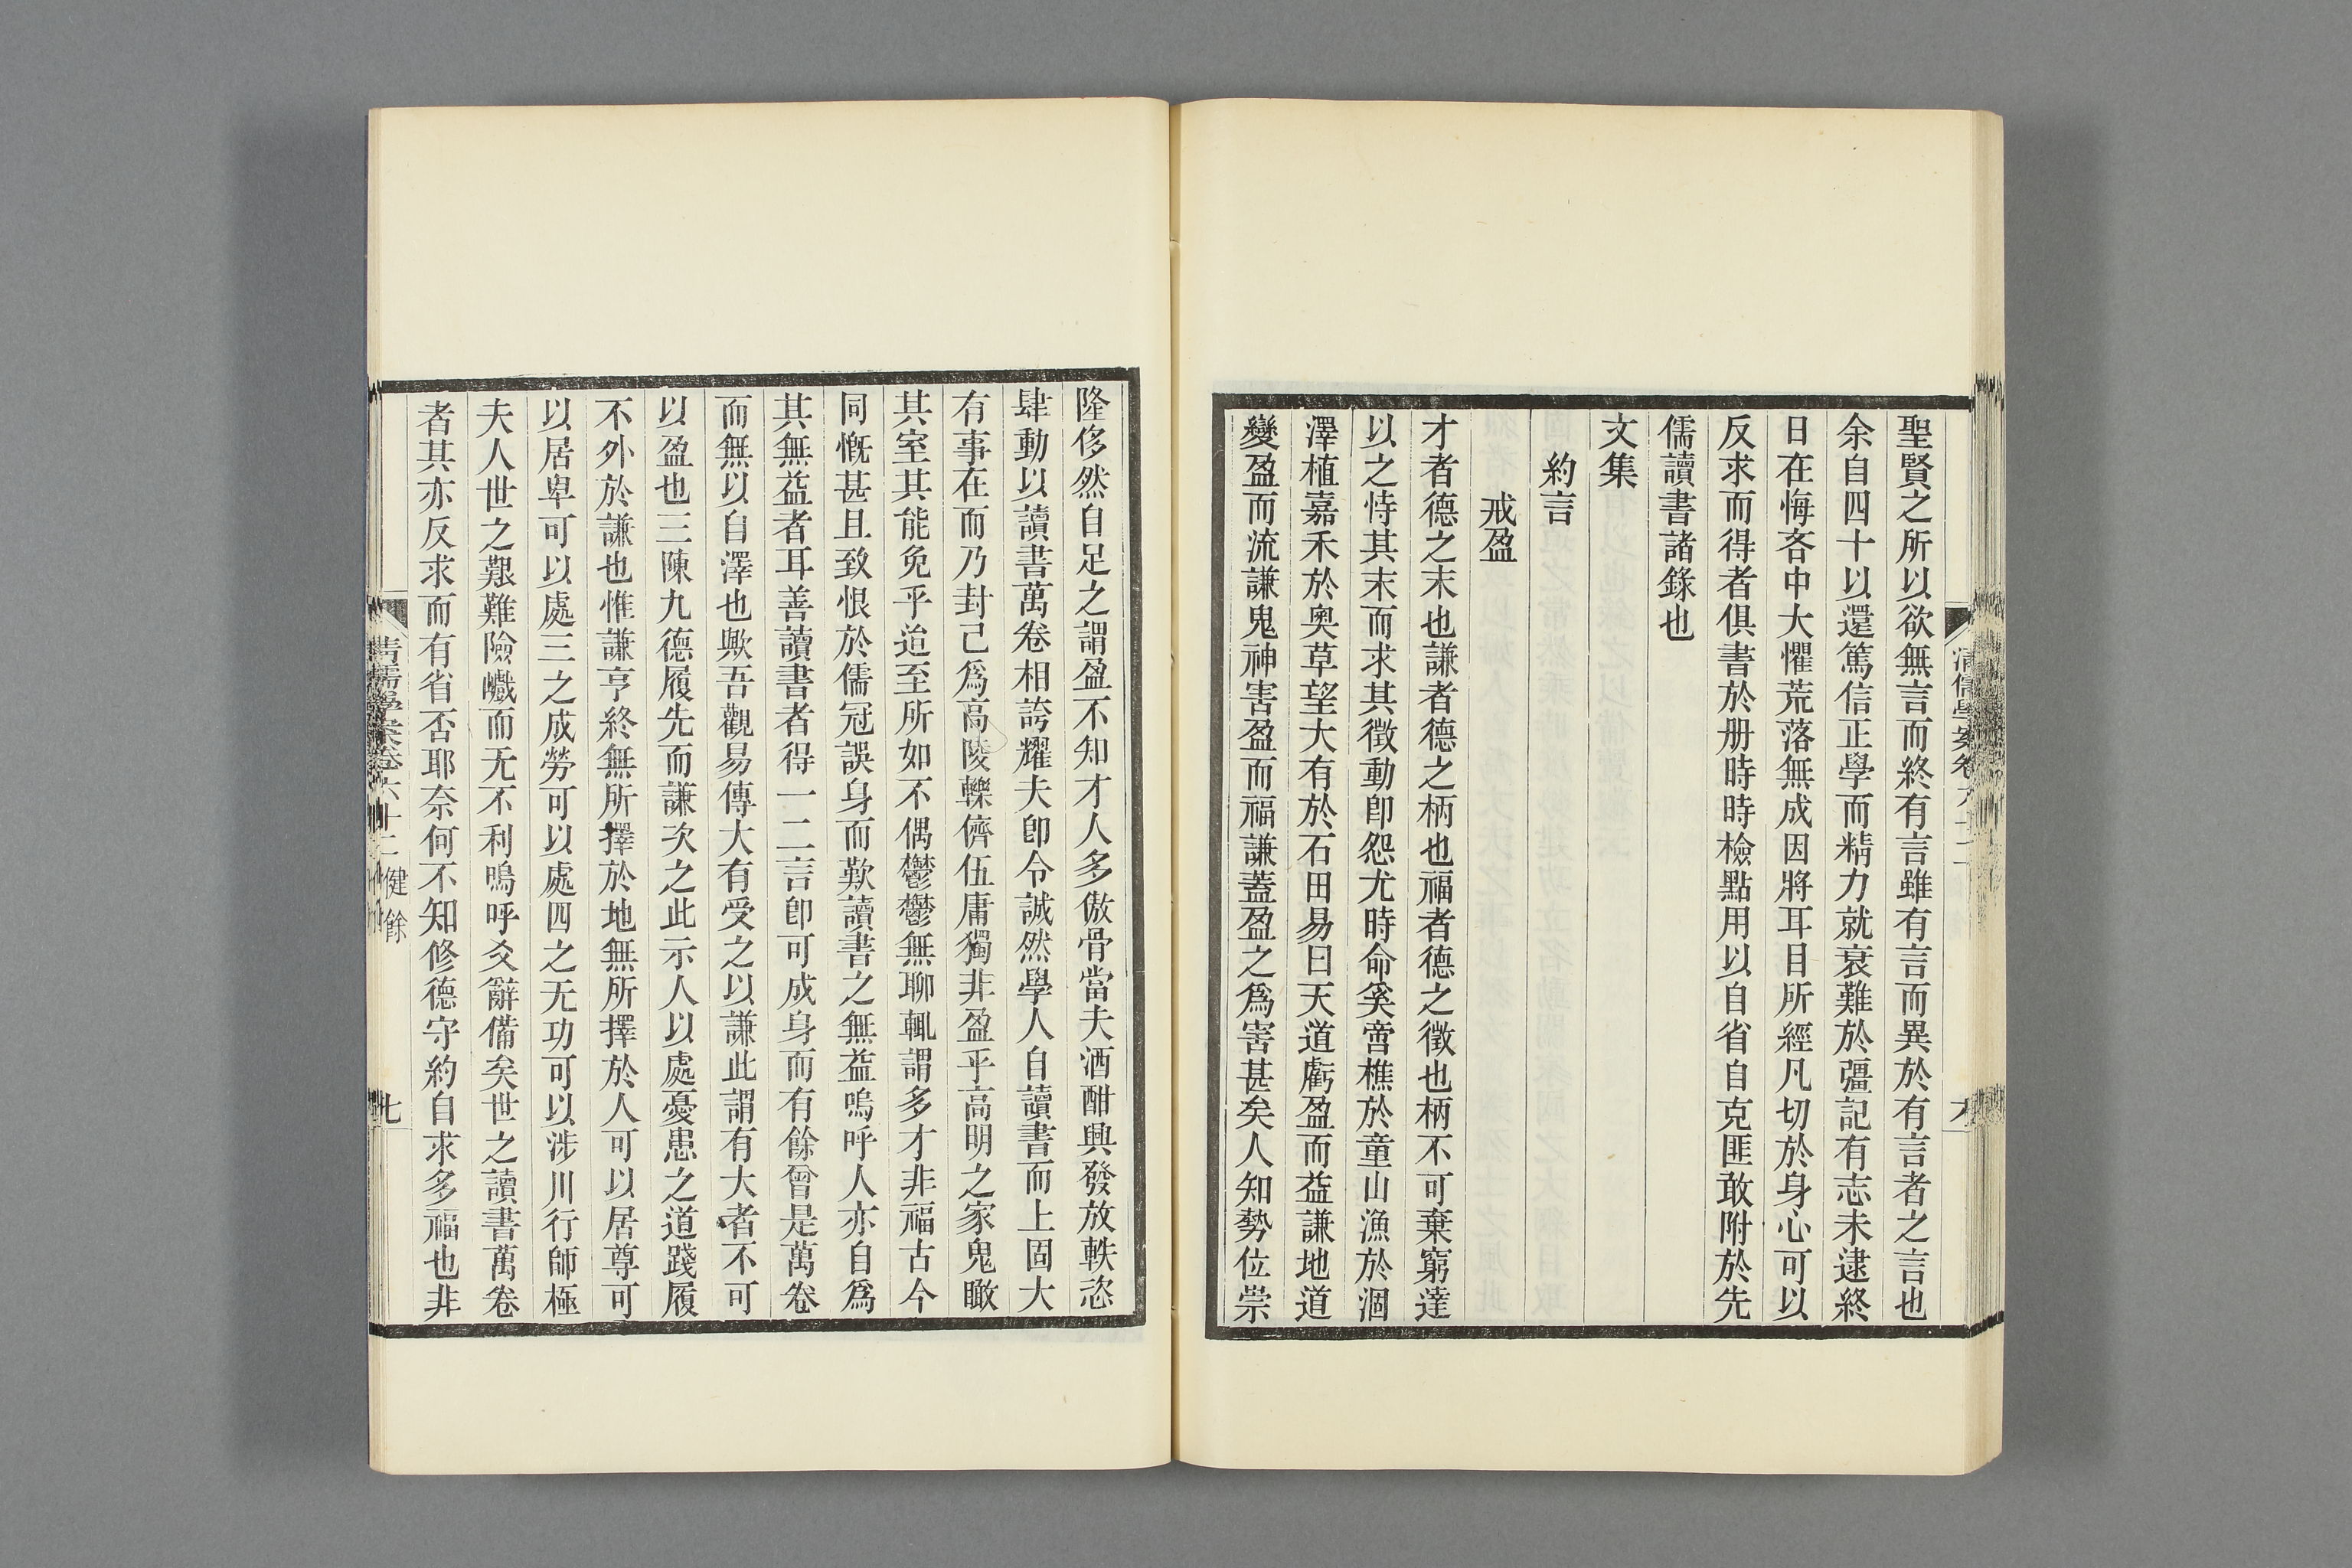 聖賢之所以欲無言而終有言雖有言而異於有言者之言也
余自四十以還篤信正學而精力就衰難於彊記有志未逮終
日在悔吝中大懼荒落無成因將耳目所經凡切於身心可以
反求而得者俱書於册時時檢點用以自省自克匪敢附於先
儒讀書諸錄也
文集
約言
戒盈
才者德之末也謙者德之柄也福者德之徵也柄不可棄窮達
以之恃其末而求其徵動卽怨尤時命奚啻樵於童山漁於涸
澤植嘉禾於奧草望大有於石田易曰天道虧盈而益謙地道
變盈而流謙鬼神害盈而福謙蓋盈之爲害甚矣人知勢位崇
隆侈然自足之謂盈不知才人多傲骨當夫酒酣興發放軼恣
肆動以讀書萬卷相誇耀夫卽令誠然學人自讀書而上固大
有事在而乃封己爲高陵轢儕伍庸獨非盈乎高明之家鬼瞰
其室其能免乎迨至所如不偶鬱鬱無聊輒謂多才非福古今
同慨甚且致恨於儒冠誤身而歎讀書之無益嗚呼人亦自爲
其無益者耳善讀書者得一二言卽可成身而有餘曾是萬卷
而無以自澤也歟吾觀易傳大有受之以謙此謂有大者不可
以盈也三陳九德履先而謙次之此示人以處憂患之道踐履
不外於謙也惟謙亨終無所擇於地無所擇於人可以居尊可
以居卑可以處三之成勞可以處四之无功可以涉川行師極
夫人世之艱難險巇而无不利嗚呼爻辭備矣世之讀書萬卷
者其亦反求而有省否耶奈何不知修德守約自求多福也非
清儒學案卷六十二 健餘
七